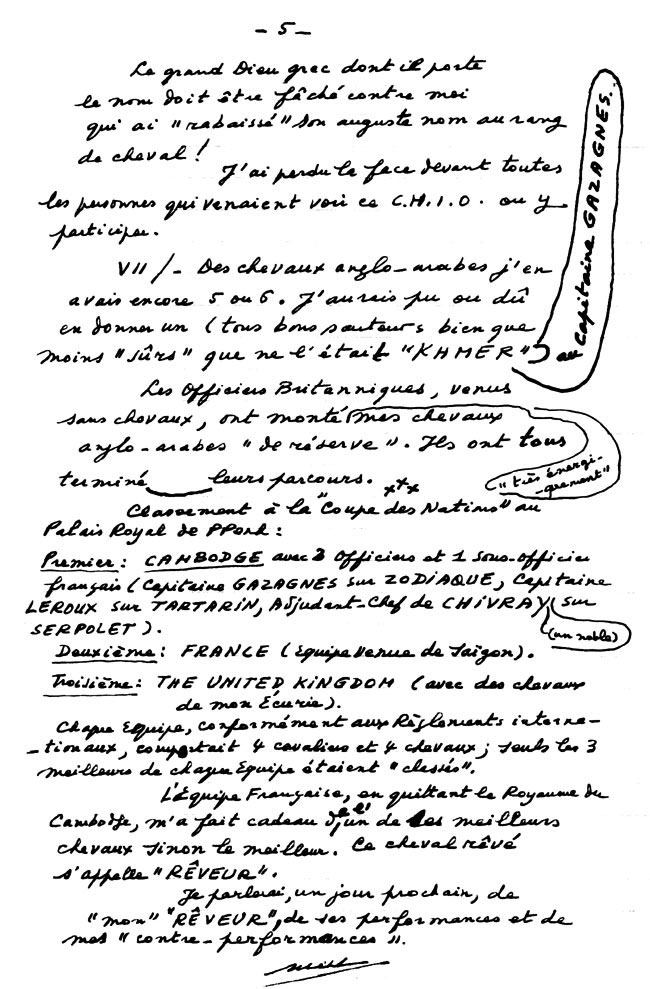 - 5 -
Le grand Dieu grec dont il porte
le nom doit être fâché contre moi
qui ai "rabaissé" son auguste nom au rang
de cheval !
J'ai perdu la face devant toutes
les personnes qui venaient voir ce C.H.I.O. ou y
participer.
VII /- Des chevaux anglo-arabes j'en
avais encore 5 ou 6. J'aurais pu ou dû
en donner un (tous bons sauteurs bien que
moins "sûrs" que ne l'était "KHMER")
au Capitaine GAZAGNES.
Les Officiers Britanniques, venus
sans chevaux, ont monté mes chevaux
anglo-arabes "de réserve". Ils ont tous
terminé leurs parcours.
"très énergi-
-quement"
xxx
Classement à la "Coupe des Nations" au
Palais Royal de PPenh :
Premier : CAMBODGE avec 3 Officiers et 1 Sous-Officier
français (Capitaine GAZAGNES sur ZODIAQUE, Capitaine
LEROUX sur TARTARIN, Adjudant-Chef de CHIVRAY sur
SERPOLET).
(un noble)
Deuxième : FRANCE (Equipe venue de Saïgon).
Troisième : THE UNITED KINGDOM (avec des chevaux
de mon Ecurie).
Chaque Equipe, conformément aux Règlements interna-
-tionaux, comportait 4 cavaliers et 4 chevaux ; seuls les 3
meilleurs de chaque Equipe étaient "classés".
L'Equipe Française, en quittant le Royaume du
Cambodge, m'a fait cadeau de l'un de ses meilleurs
chevaux sinon le meilleur. Ce cheval rêvé
s'appelle "RÊVEUR".
Je parlerai, un jour prochain, de
"mon" "RÊVEUR", de ses performances et de
mes "contre-performances".